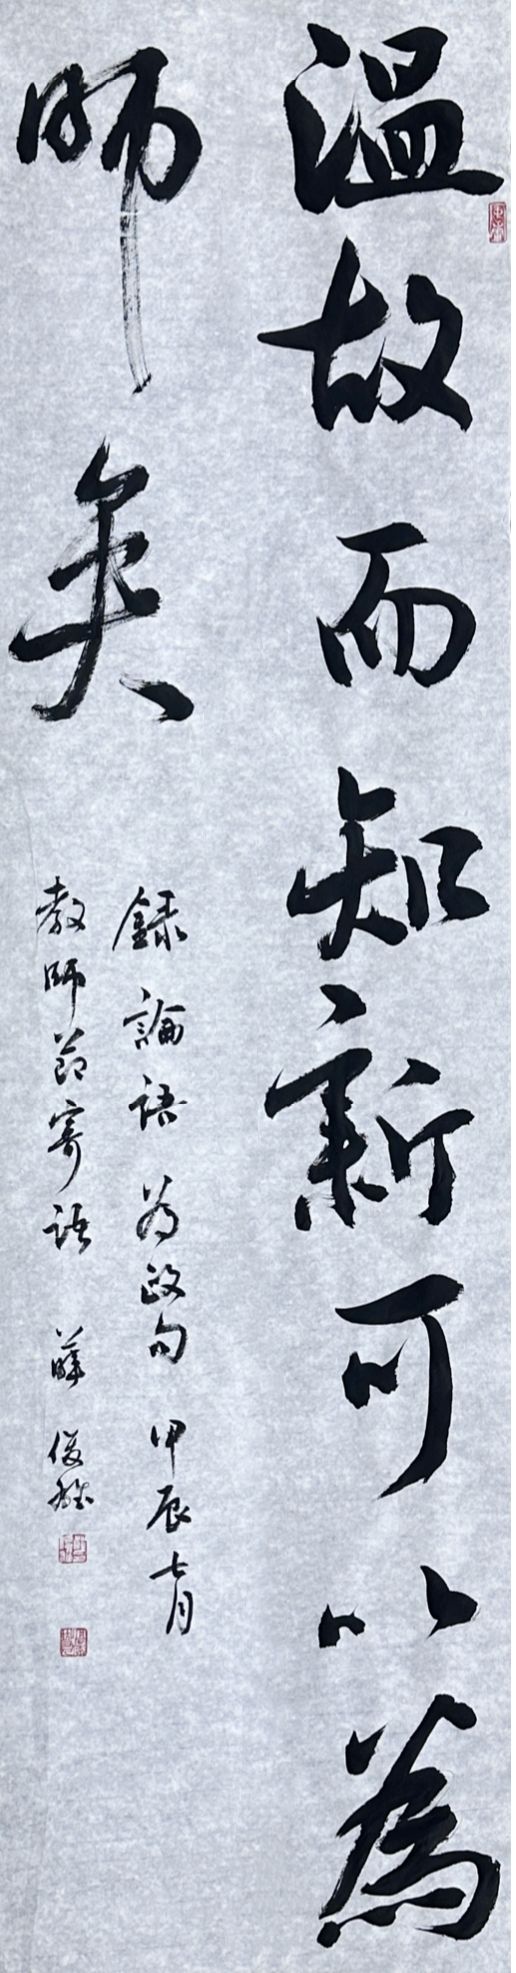 溫故而知新可以為
師矣
錄論語為政句 甲辰七月
教師節寄語 薛俊